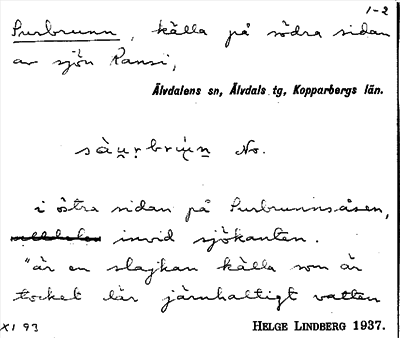 1-2
Surbrunn, källa på södra sidan
av sjön Ransi,
Älvdalens sn, Älvdals tg, Kopparbergs län.
No.
i östra sidan på Surbrunnsåsen,
invid sjökanten.
"är en slajkan källa som är
tocket där järnhaltigt vatten
XI 93
HELGE LINDBERG 1937.